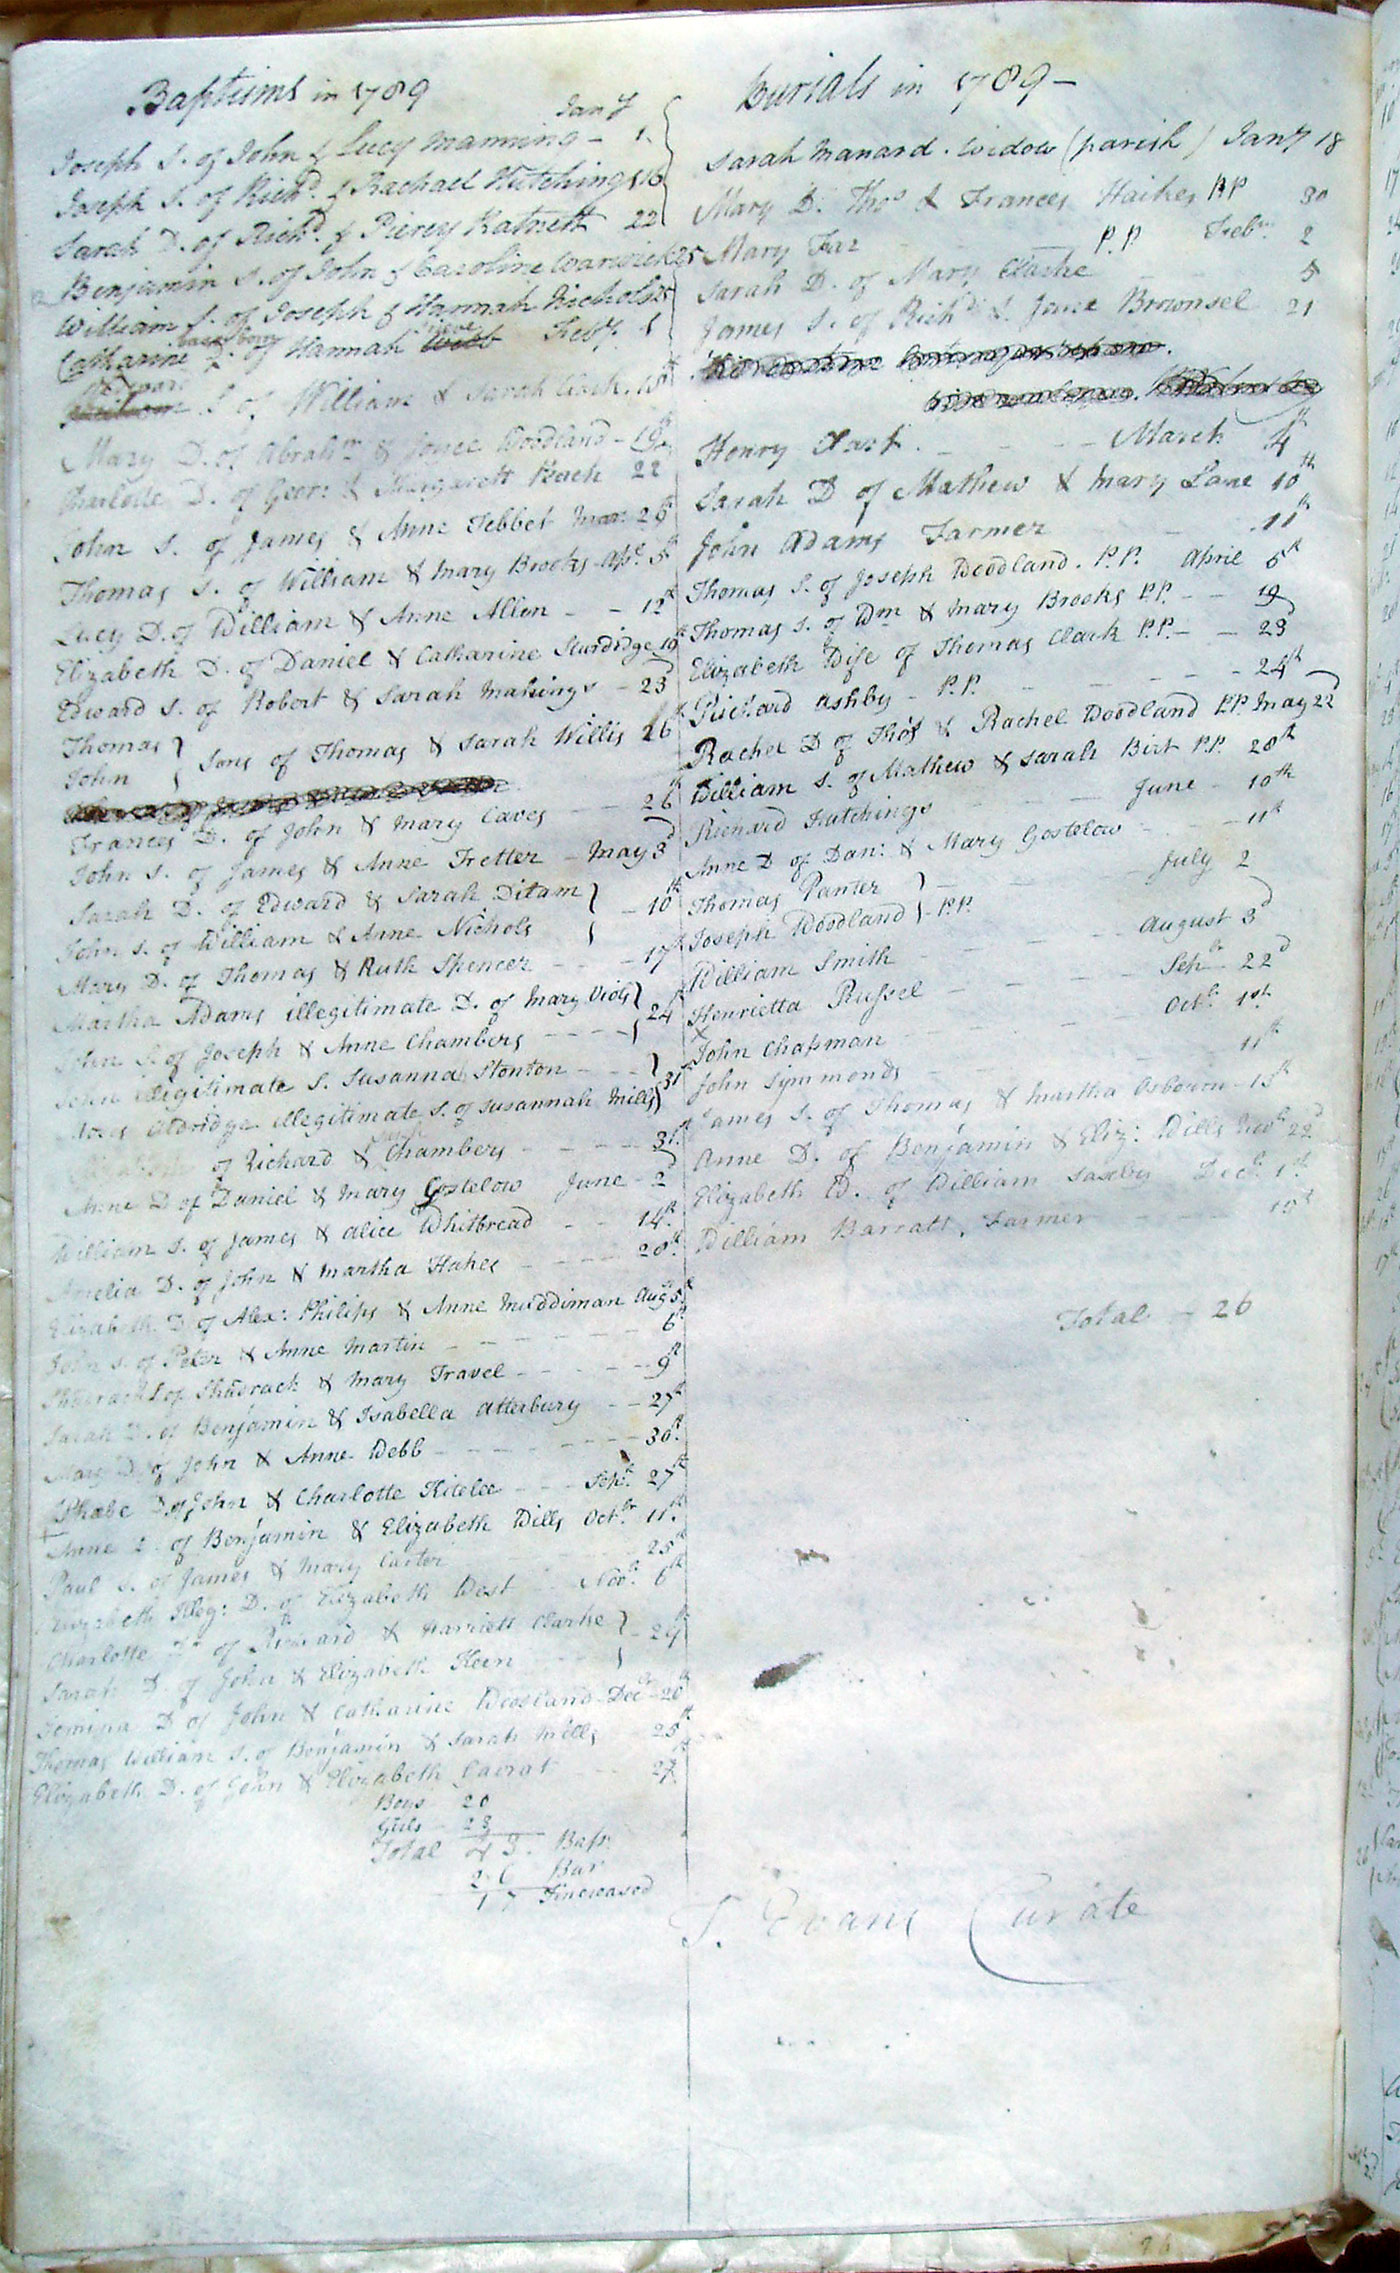 Baptisms in 1789
Jany
Joseph S. of John & Lucy Manning - 1.
Joseph S. of Richd. & Rachael Hutchings 18
Sarah D. of Richd. & Piercy Katnett 22
Benjamin S. of John & Caroline Warwick 25
William S. of Joseph & Hannah Nichols 25
base born
Catharine D. of Hannah Feby. 1
S. of William & Sarah Clark. 15th
Mary D. of Abrahm & Joyce Woodland - 19th
Charlotte D. of Geor: & Margarett Peach 22
John S. of James & Anne Tebbet Mar: 29th
Thomas S. of William & Mary Brooks Apl. 5th
Lucy D. of William & Anne Allen - - 12th
Elizabeth D. of Daniel & Catharine Sturdidge 19th
Edward S. of Robert & Sarah Makings - 23d
Thomas } Sons of Thomas & Sarah Willis 26th
John
Frances D. of John & Mary Caves - 26th
John S. of James & Anne Tretter - May 3d
Sarah D. of Edward & Sarah Ditam } - 10th
John S. of William & Anne Nichols
Mary D. of Thomas & Ruth Spencer - - - 17th
Martha Adams illegitimate D. of Mary Viols } 24th
Ann D. of Joseph & Anne Chambers - - - -
John illegitimate S. Susanna Stonton - - - } 31st
Moses Aldridge illegitimate S. of Susannah Mills
of Richard & Chambers - - - - 31st.
Anne D of Daniel & Mary Gostelow June - 2d
William S. of James & Alice Whitbread - - 14th.
Amelia D. of John & Martha Hakes - - - - 28th.
Elizabeth D. of Alex: Philips & Anne Muddiman Augst 5th
John S. of Peter & Anne Martin - - - - - - 6th
Shadrach S. of Shadrach & Mary Travel - - - - - 9th
Sarah D. of Benjamin & Isabella Atterbury - - 27th
Mary D. of John & Anne Webb - - - - - - - - 30th.
Phabe D. of John & Charlotte Kitelee - - - Sepr. 27th
Anne D. of Benjamin & Elizabeth Wills Octbr. 11th.
Paul S. of James & Mary Carter 25th
Elizabeth Illeg: D. of Elizabeth West - - Novr. 6th
Charlotte Dr of Richard & Harriett Clarke } - 29th
Sarah D. of John & Elizabeth Keen
Jemima D of John & Catharine Woodland Decr - 20th
Thomas William S. of Benjamin & Sarah Mills - 25th
Elizabeth D. of John & Elizabeth - - 27th
Boys 20
Girls - 23
Total 43. Bap:
26 Bur
17 Increased
Burials in 1789 -
Sarah Manard. Widow (parish) Jany 18
Mary D. Thos & Frances Haikes P.P 30
Mary Far P.P Febry 2
Sarah D. of Mary Clarke - - 5
James S. of Richd. & Jane Brownsel 21
Henry Clark. - - - - - March 4th
Sarah D of Mathew & Mary Lane 10th
John Adams Farmer - - 11th
Thomas S. of Joseph Woodland. P.P. April 5th
Thomas S. of Wm & Mary Brooks P.P. - - 19
Elizabeth Wife of Thomas Clark P.P. - - 23d
Richard Ashby - P.P. - - - - - 24th
Rachel D of Thos & Rachel Woodland P.P. May 22d
William S. of Mathew & Sarah Birt P.P. 28th
Richard Hutchings - - - June - 10th
Anne D of Dan: & Mary Gostelow - - - 11th
Thomas Panter } - - - - July 2
Joseph Woodland } - P.P.
William Smith - - - - - August 3d
Henrietta Russel - - - - - Sepr 22d
John Chapman - - - - - Octbr. 1st
John Symmonds - - - - - 11th
James S. of Thomas & Martha Osbourn - 15th
Anne D. of Benjamin & Eliz: Wills Novbr 22d
Elizabeth D. of William Saxby Decbr. 1st.
William Barratt, Farmer - - - - 15th
Total - 26
S. Evans Curate